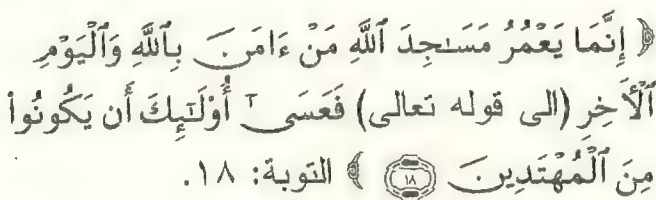 ﴿ إِنَّمَا يَعْمُرُ مَسَٰجِدَ ٱللَّهِ مَنْ ءَامَنَ بِٱللَّهِ وَٱلْيَوْمِ
ٱلْأَخِرِ (الى قوله تعالى) فَعَسَىٰٓ أُوْلَٰٓئِكَ أَن يَكُونُواْ
مِنَ ٱلْمُهْتَدِينَ ١٨ ﴾ التوبة: ١٨.